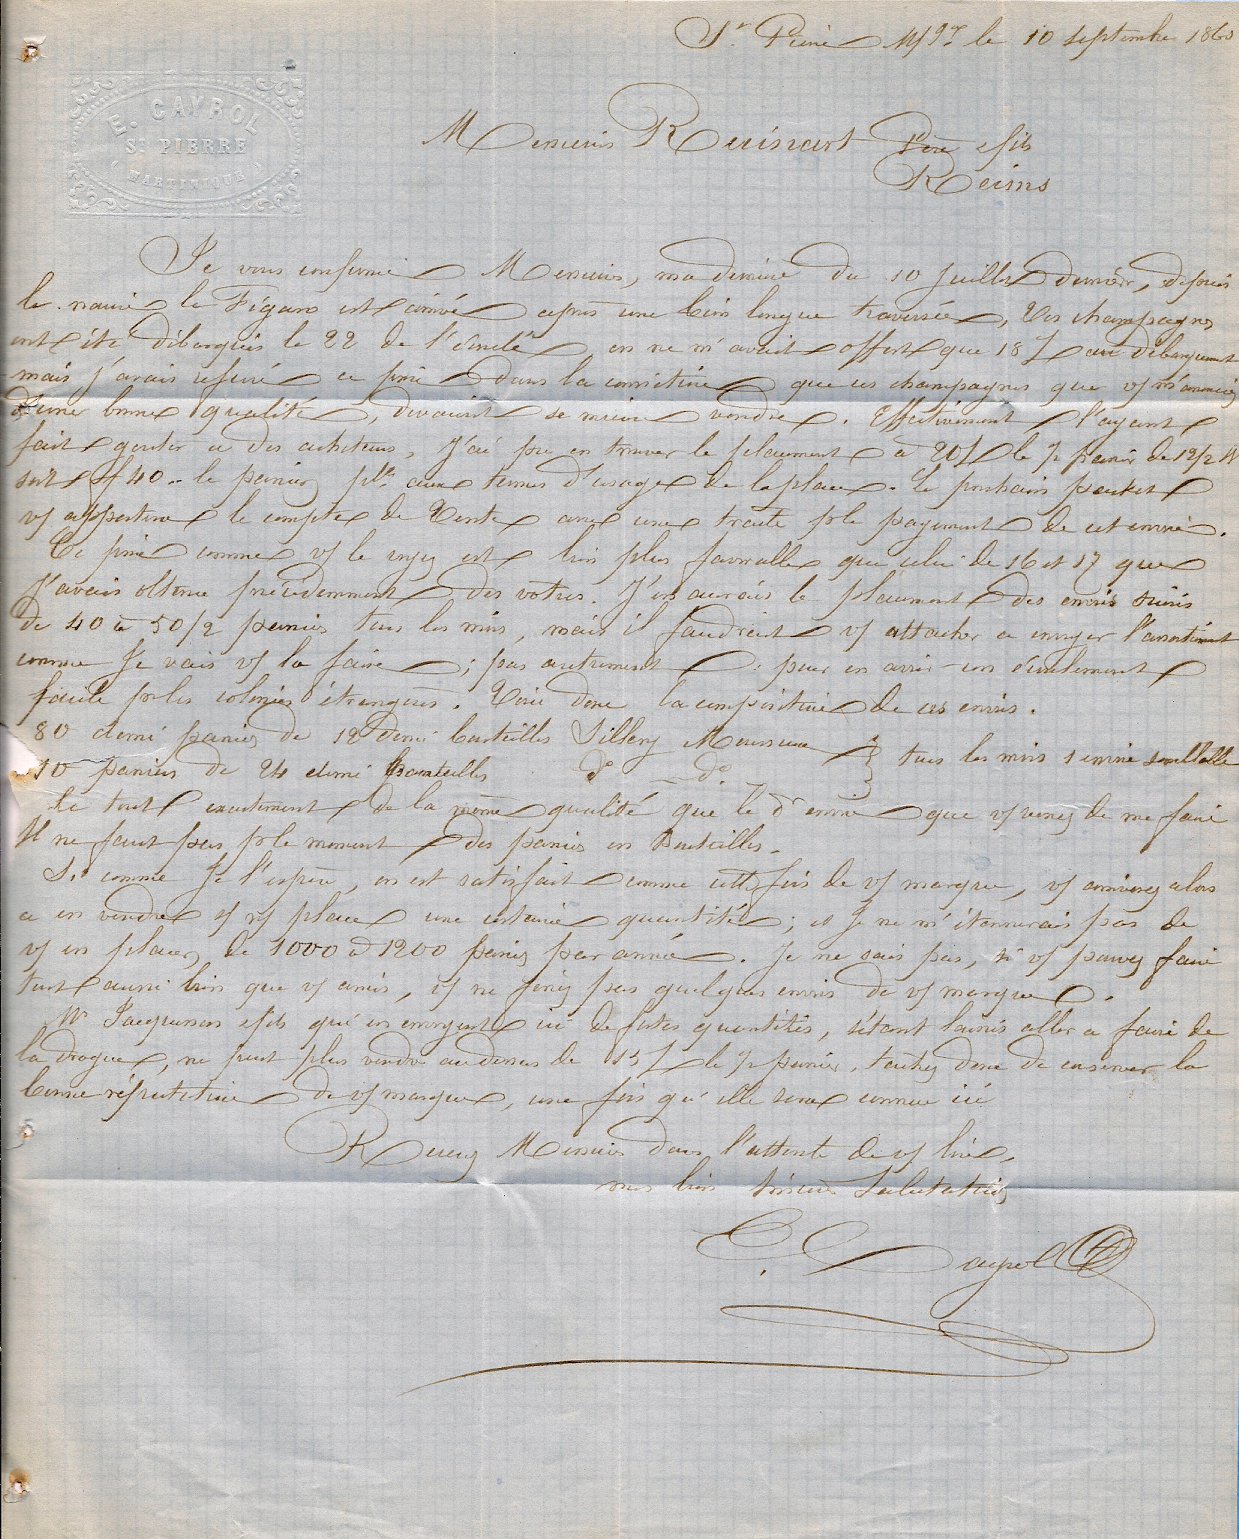 St Pierre Mque le 10 septembre 1860
E. CAYROL
ST PIERRE
MARTINIQUE
Messieurs Ruinart Père & fils
Reims
Je vous confirme Messieurs, ma dernière du 10 Juillet dernier, depuis
le navire le Figaro est arrivé après une bien longue traversée, Vos champagnes
ont été débarqués le 22 de l'écoulé, on ne m'avait offert que 18 f au débarquement
mais j'avais refusé ce prix dans la conviction que ces champagnes que vs m'annonciez
d'une bonne qualité, devaient se mieux vendre. Effectivement l'ayant
fait gouter a des acheteurs, j'ai pu en trouver le placement à 20 f le ½ panier de 12/2 Blles
soit f 40.. le panier aux termes d'usage de la place. Le prochain packet
vs apportera le compte de Vente avec une traite pr le payement de cet envoi.
Ce prix comme vs le voyez est bien plus favorable que celui de 16 et 17 que
j'avais obtenu précédemment des votres. J'en aurais le placement des envois suivis
de 40 à 50/2 paniers tous les mois, mais il faudrait vs attacher a envoyer l'assortiment
comme Je vais vs la faire; pas autrement; pour en avoir un écoulement
facile pr les colonies étrangères. Voici donc la composition de ces envois.
80 demi paniers de 12 demi bouteilles Sillery Mousseux } tous les mois 1 envoi semblable
10 paniers de 24 demi Bouteilles do do
le tout exactement de la même qualité que le dr envoi que vs venez de me faire
Il ne faut pas pr le moment des paniers en Bouteilles.
Si comme Je l'espère, on est satisfait comme cette fois de vs marque, vs arriverez alors
a en vendre s/ ns place une certaine quantité; et Je ne m'étonnerais pas de
vs en placer, de 1000 à 1200 paniers par année. Je ne sais pas, si vs pouvez faire
tout aussi bien que vs amis, vs ne ferez pas quelques envois de vs marque.
Mr Jacquesson & fils qui en envoyent ici de fortes quantités, s'étant laissés aller a faire de
la drogue, ne peut plus vendre au dessus de 15 f le ½ panier, tachez donc de conserver la
bonne réputation de vs marque, une fois qu'elle sera connue ici
Recevez Messieurs dans l'attente de vs lire,
mes bien sincères Salutations
E. Cayrol